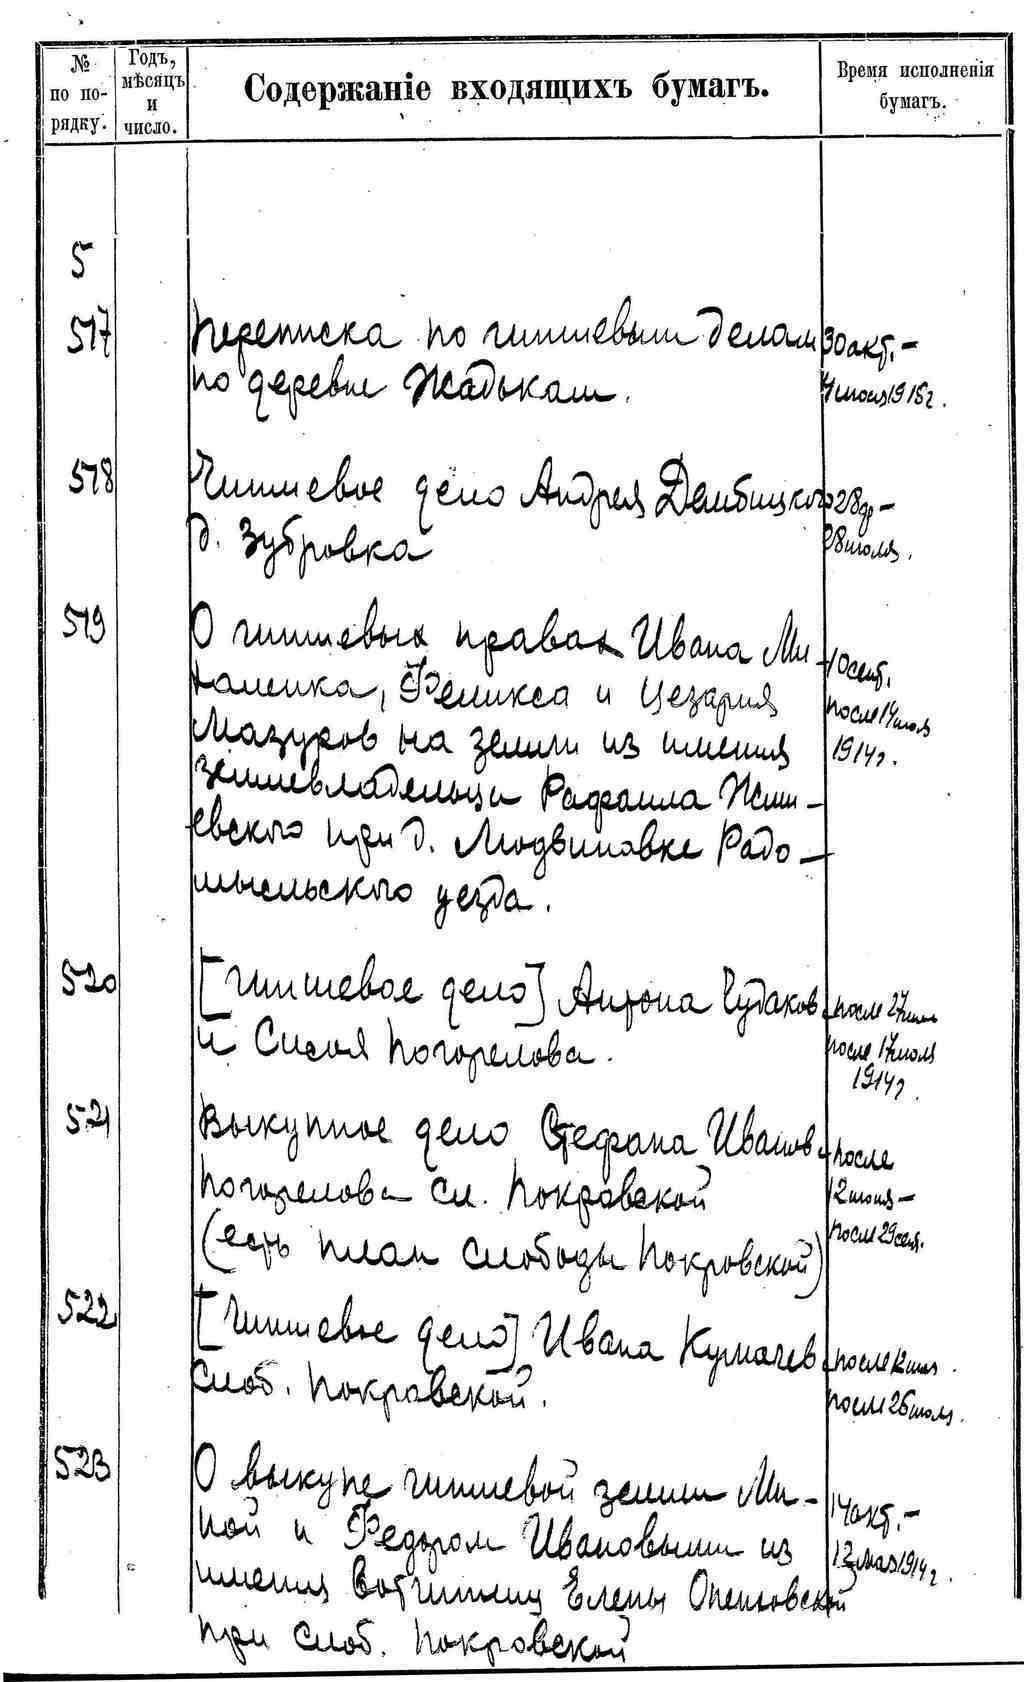 № по порядку.
Годъ, мѣсяцъ и число.
Содержаніе входящихъ бумагъ.
Время исполненія бумагъ.
5
517
Переписка по чиншевым делам
по деревне Жадькам.
30 окт. -
4 июля 1915 г.
518
Чиншевое дело Андрея Дембицкого
д. Зубровка
28 др -
28 июля.
519
О чиншевых правах Ивана Ми-
халенка, Феликса и Цезария
Мазуров на земли из имения
землевладельца Рафаила Жми-
евского при д. Людвиновке Радо-
мысльского уезда.
10 сент.
после 14 июля
1914 г.
520
[Чиншевое дело] Антона Чудаков
и Сысоя Погорелова.
после 27
после 17 июля
1914 г.
521
Выкупное дело Стефана Иванов
Погорелова сл. Покровской
(есть план слободы Покровской)
после
12 июня -
после 29 сент.
522
[Чиншевое дело] Ивана Кумачев
слоб. Покровской.
после 12
после 26 июля.
523
О выкупе чиншевой земли Ми-
ной и Федором Ивановыми из
имения вотчинниц Елены Опеньховской
при слоб. Покровской
14 окт. -
13 мая 1914 г.